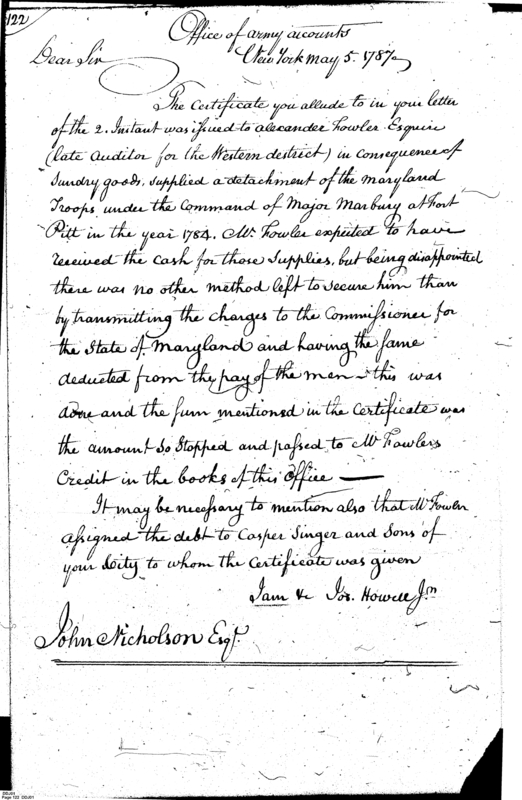 122
Office of army accounts
New York May 5. 1787
Dear Sir
The Certificate you allude to in your letter
of the 2. Instant was issued to Alexander Fowler Esquire
(late Auditor for the Western district) in Consequence of
Sundry goods, supplied a detachment of the Maryland
Troops under the Command of Major Marbury at Fort
Pitt in the year 1784. Mr Fowler expected to have
received the Cash for those Supplies, but being disappointed
there was no other method left to secure him than
by transmitting the charges to the Commissioner for
the State of Maryland and having the same
deducted from the pay of the men – this was
done and the sum mentioned in the Certificate was
the amount so stopped and passed to Mr Fowlers
Credit in the books of this office —
It may be necessary to mention also that Mr Fowler
assigned the debt to Casper Singer and Sons of
your City to whom the Certificate was given
I am & Jos. Howell Jn
John Nicholson Esqr.
DDJ01
Page 122 DDJ01